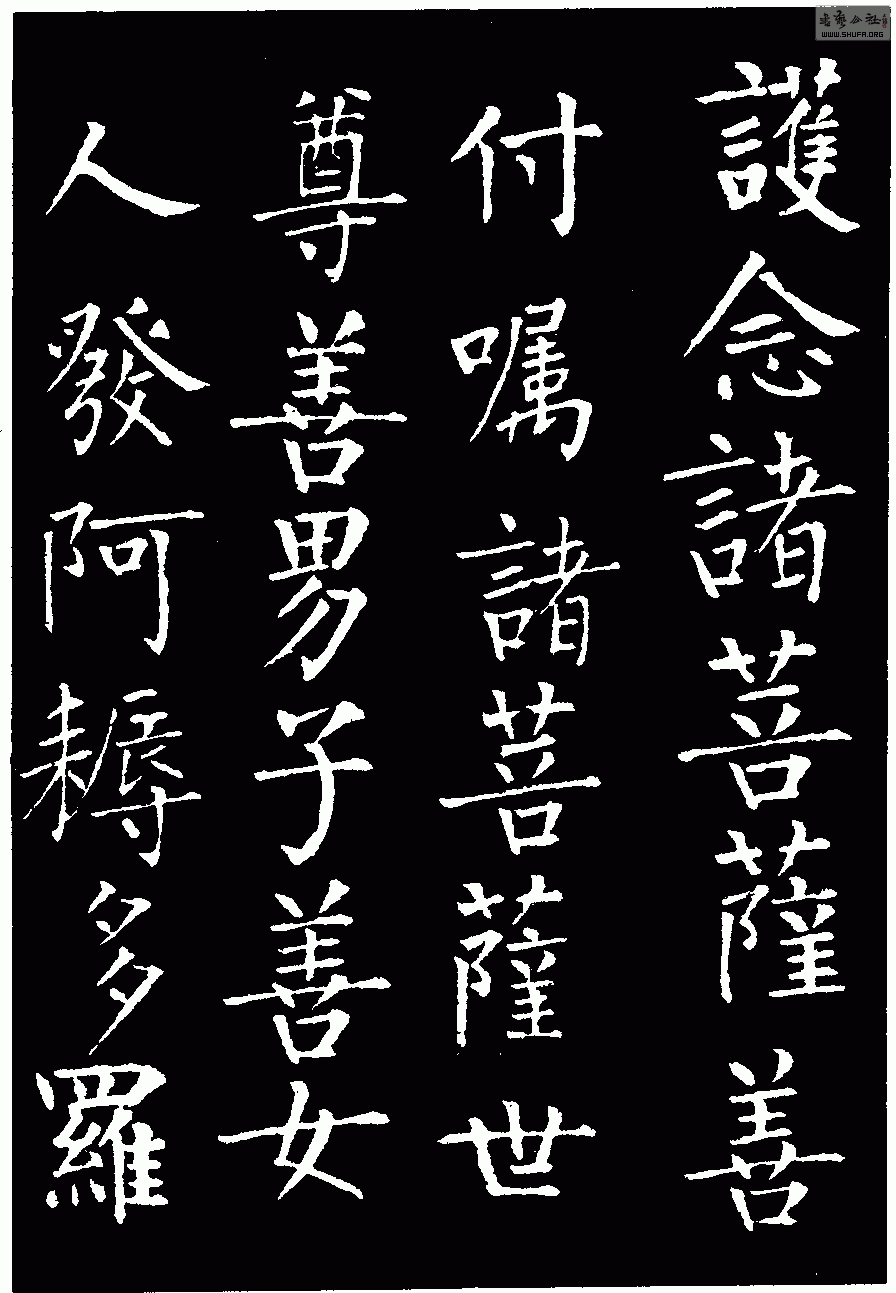 護念諸菩薩善
付嘱諸菩薩世
尊善男子善女
人發阿耨多羅
WWW.SHUFA.ORG